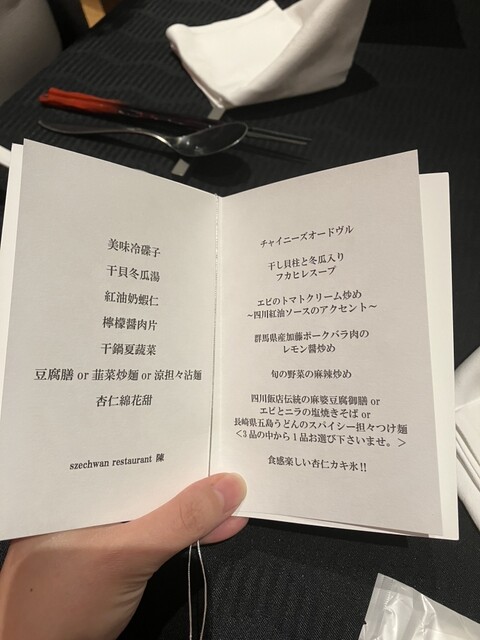 美味冷碟子
干貝冬瓜湯
紅油奶蝦仁
檸檬醤肉片
干鍋夏蔬菜
豆腐膳 or 韮菜炒麺 or 涼担々沾麺
杏仁綿花甜
szechwan restaurant 陳
チャイニーズオードヴル
干し貝柱と冬瓜入り
フカヒレスープ
エビのトマトクリーム炒め
～四川紅油ソースのアクセント～
群馬県産加藤ポークバラ肉の
レモン醤炒め
旬の野菜の麻辣炒め
四川飯店伝統の麻婆豆腐御膳 or
エビとニラの塩焼きそば or
長崎県五島うどんのスパイシー担々つけ麺
＜3品の中から1品お選び下さいませ。＞
食感楽しい杏仁カキ氷!!